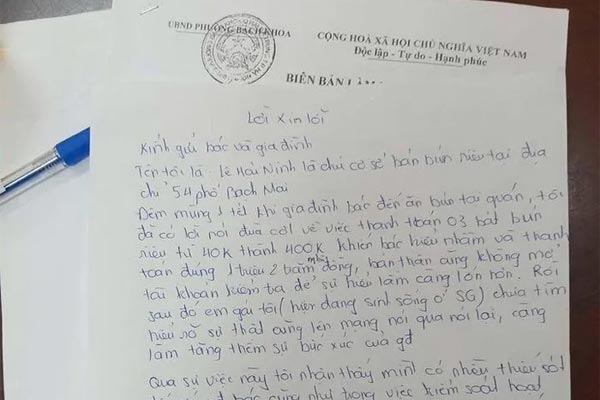 UBND PHƯỜNG BẠCH KHOA
CỘNG HOÀ XÃ HỘI CHỦ NGHĨA VIỆT NAM
Độc lập - Tự do - Hạnh phúc
BIÊN BẢN
Lời xin lỗi
Kính gửi bác và gia đình
Tên tôi là: Lê Hải Ninh là chủ cơ sở bán bún riêu tại địa
chỉ 54 phố Bạch Mai
Đêm mùng 1 tết khi gia đình bác đến ăn bún tại quán, tôi
đã có lời nói đùa cợt về việc thanh toán 03 bát bún
riêu từ 40K thành 400K khiến bác hiểu nhầm và thanh
toán đúng 1 triệu 2 trăm nghìn đồng, bản thân cũng không mở
tài khoản kiểm tra để sự hiểu lầm càng lớn hơn. Rồi
sau đó em gái tôi (hiện đang sinh sống ở SG) chưa tìm
hiểu rõ sự thật cũng lên mạng nói qua nói lại, càng
làm tăng thêm sự bức xúc của gđ
Qua sự việc này tôi nhận thấy mình có nhiều thiếu sót
cũng như trong việc kiểm soát hoạt